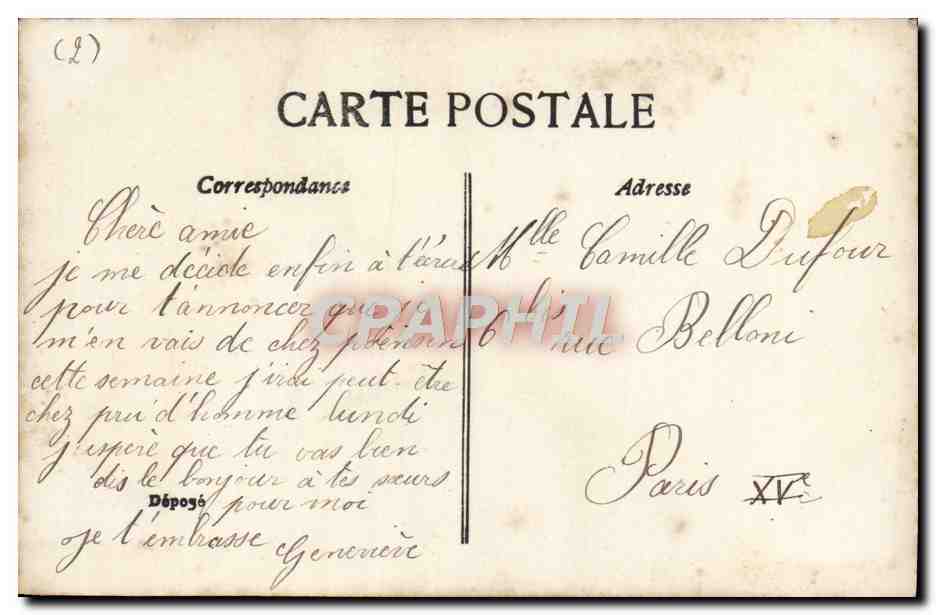 (2)
CARTE POSTALE
Correspondance
Chère amie
je me décide enfin à t'écrire
pour t'annoncer que si
m'en vais de chez
cette semaine j'irai peut-être
chez pru d'homme lundi
j'espère que tu vas bien
dis le bonjour à tes sœurs
Déposé
pour moi
je t'embrasse
Geneviève
Adresse
Mlle Camille Dufour
6 bis rue Belloni
Paris XVe
CPAPHIL